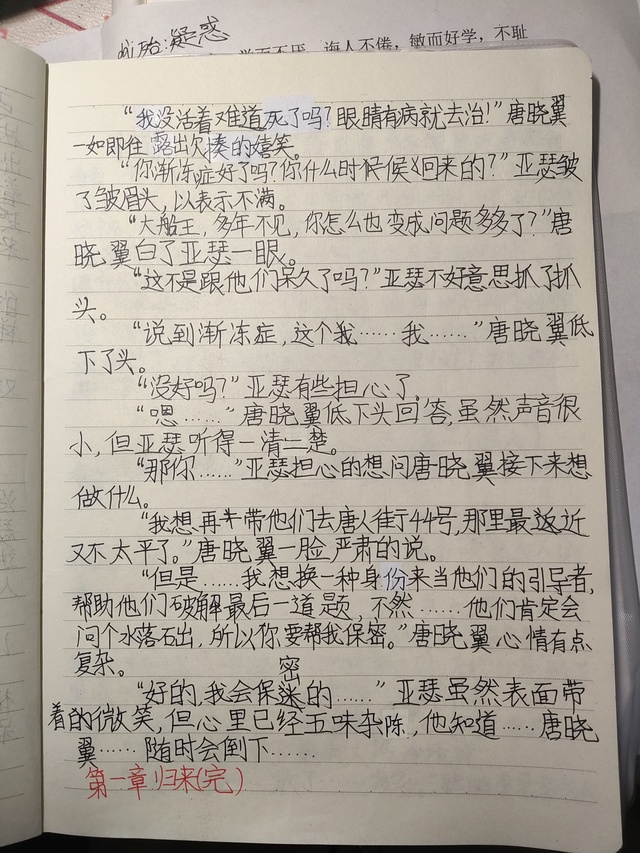 疑惑
诲人不倦，敏而好学，不耻
“我没活着难道死了吗？眼睛有病就去治！”唐晓翼
一如即往露出欠揍的嬉笑。
“你渐冻症好了吗？你什么时候回来的？”亚瑟皱
了皱眉头，以表示不满。
“大船王，多年不见，你怎么也变成问题多多了？”唐
晓翼白了亚瑟一眼。
“这不是跟他们呆久了吗？”亚瑟不好意思抓了抓
头。
“说到渐冻症，这个我……我……”唐晓翼低
下了头。
“没好吗？”亚瑟有些担心了。
“嗯……”唐晓翼低下头回答，虽然声音很
小，但亚瑟听得一清二楚。
“那你……”亚瑟担心的想问唐晓翼接下来想
做什么。
“我想再带他们去唐人街44号，那里最近
又不太平了。”唐晓翼一脸严肃的说。
“但是……我想换一种身份来当他们的引导者，
帮助他们破解最后一道题，不然……他们肯定会
问个水落石出，所以你要帮我保密。”唐晓翼心情有点
复杂。
密
“好的，我会保的……”亚瑟虽然表面带
着的微笑，但心里已经五味杂陈，他知道……唐晓
翼……随时会倒下……
第一章归来(完)